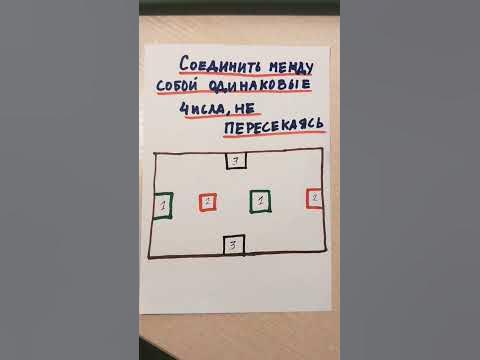 Соединить между
собой одинаковые
числа, не
пересекаясь
3
1 2 1 2
3